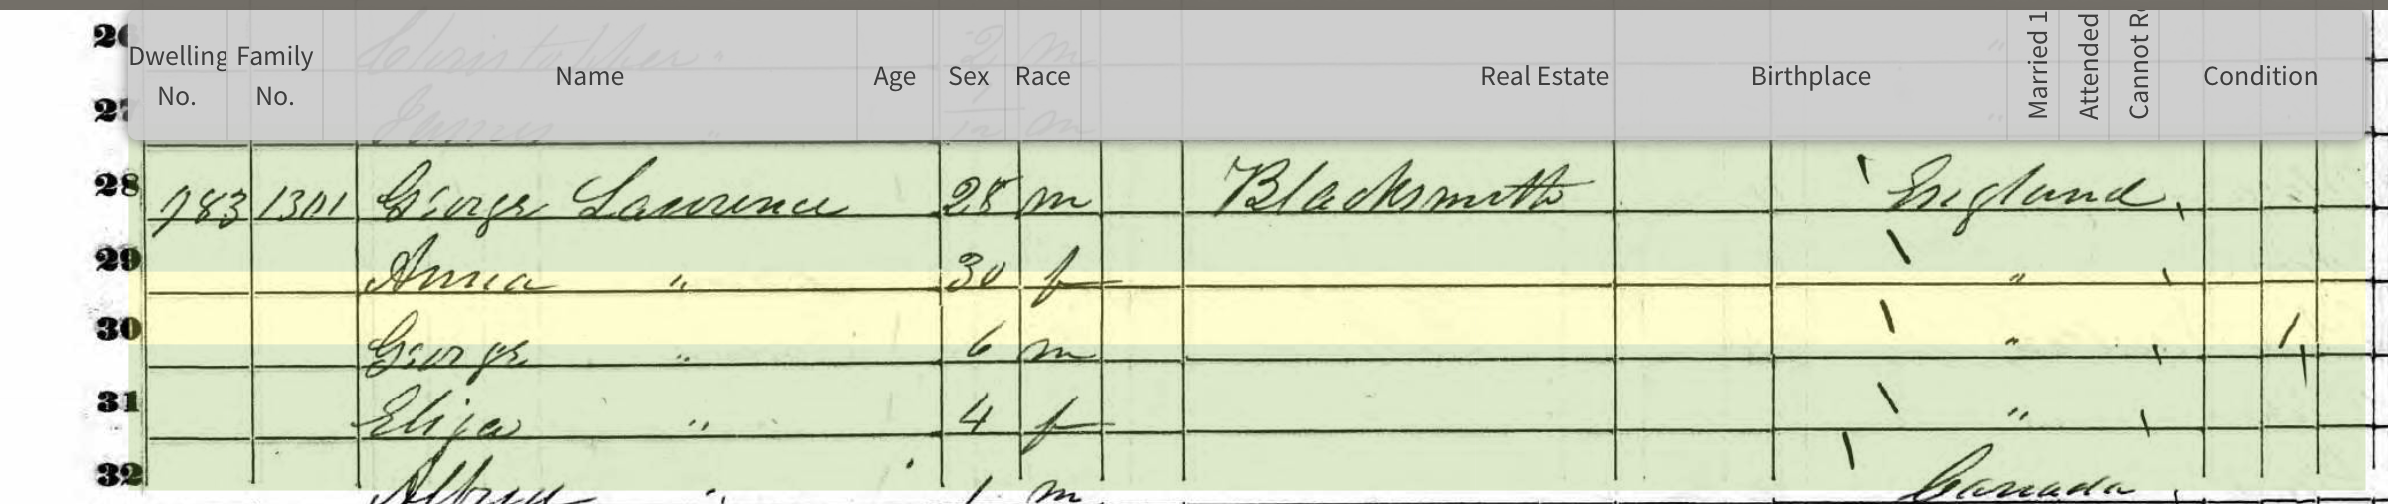 26 Christopher " 2 m "
Dwelling No. Family No. Name Age Sex Race Real Estate Birthplace Married 1 Attended Cannot R Condition
27 James " /12 m "
28 783 1301 George Lawrence 28 m Blacksmith England
29 Anna " 30 f "
30 George " 6 m " /
31 Eliza " 4 f "
32 Alfred " 1 m Canada